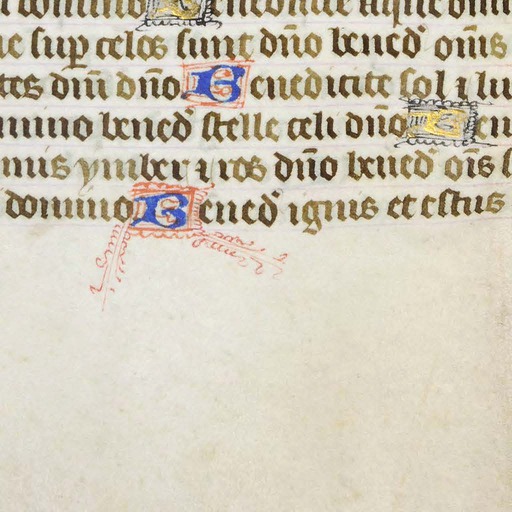 domino Benedicite aque om
e sup celos sunt dño bened̉ om̄s
tes dñi dño Benedicite sol ⁊ lu
mino bened̉ stelle celi dño Ben
nnis ymber ⁊ ros dño bened̉ oīs s
domino Bened̉ ignis et estus